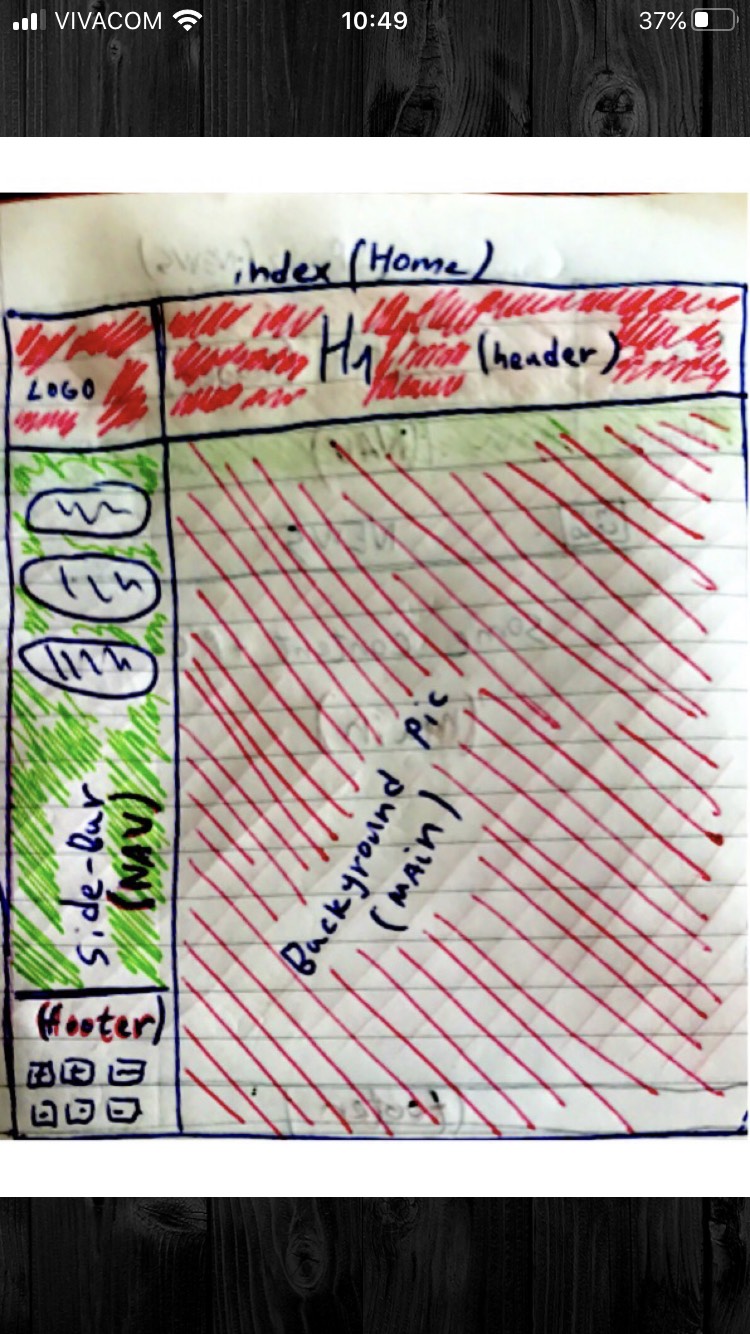 VIVACOM 10:49 37%
index (Home)
LOGO
H1 (header)
Side-Bar
(NAV)
Background pic
(MAin)
(footer)